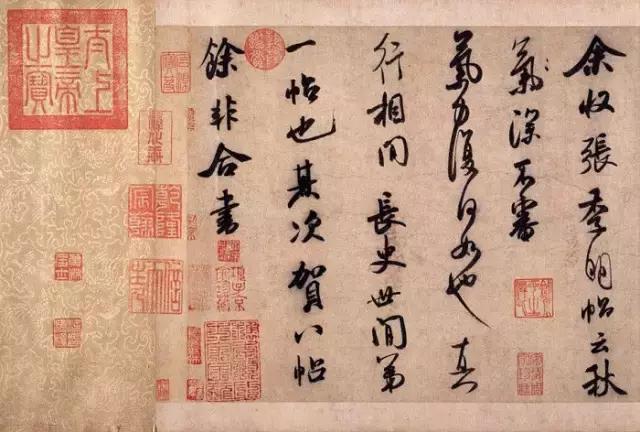 余收張季明帖云秋
氣深不審
氣力復何如也真
行相間長史世間第
一帖也其次賀八帖
餘非合書
太上皇帝之寶
乾隆宸翰